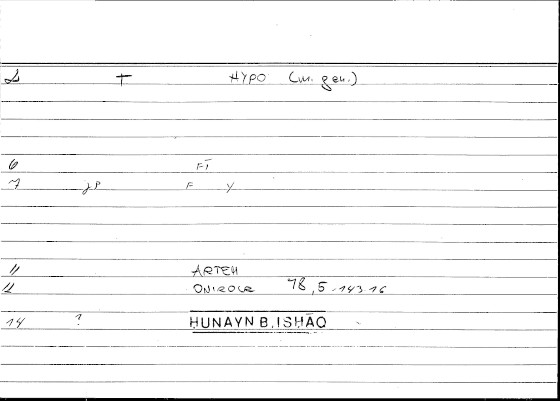 2 + HYPO (w. gen.)
6 FI
7 gP F Y
11 ARTEM
12 ONIROCR 78,5-143.16
14 ? HUNAYN B. ISḤĀQ